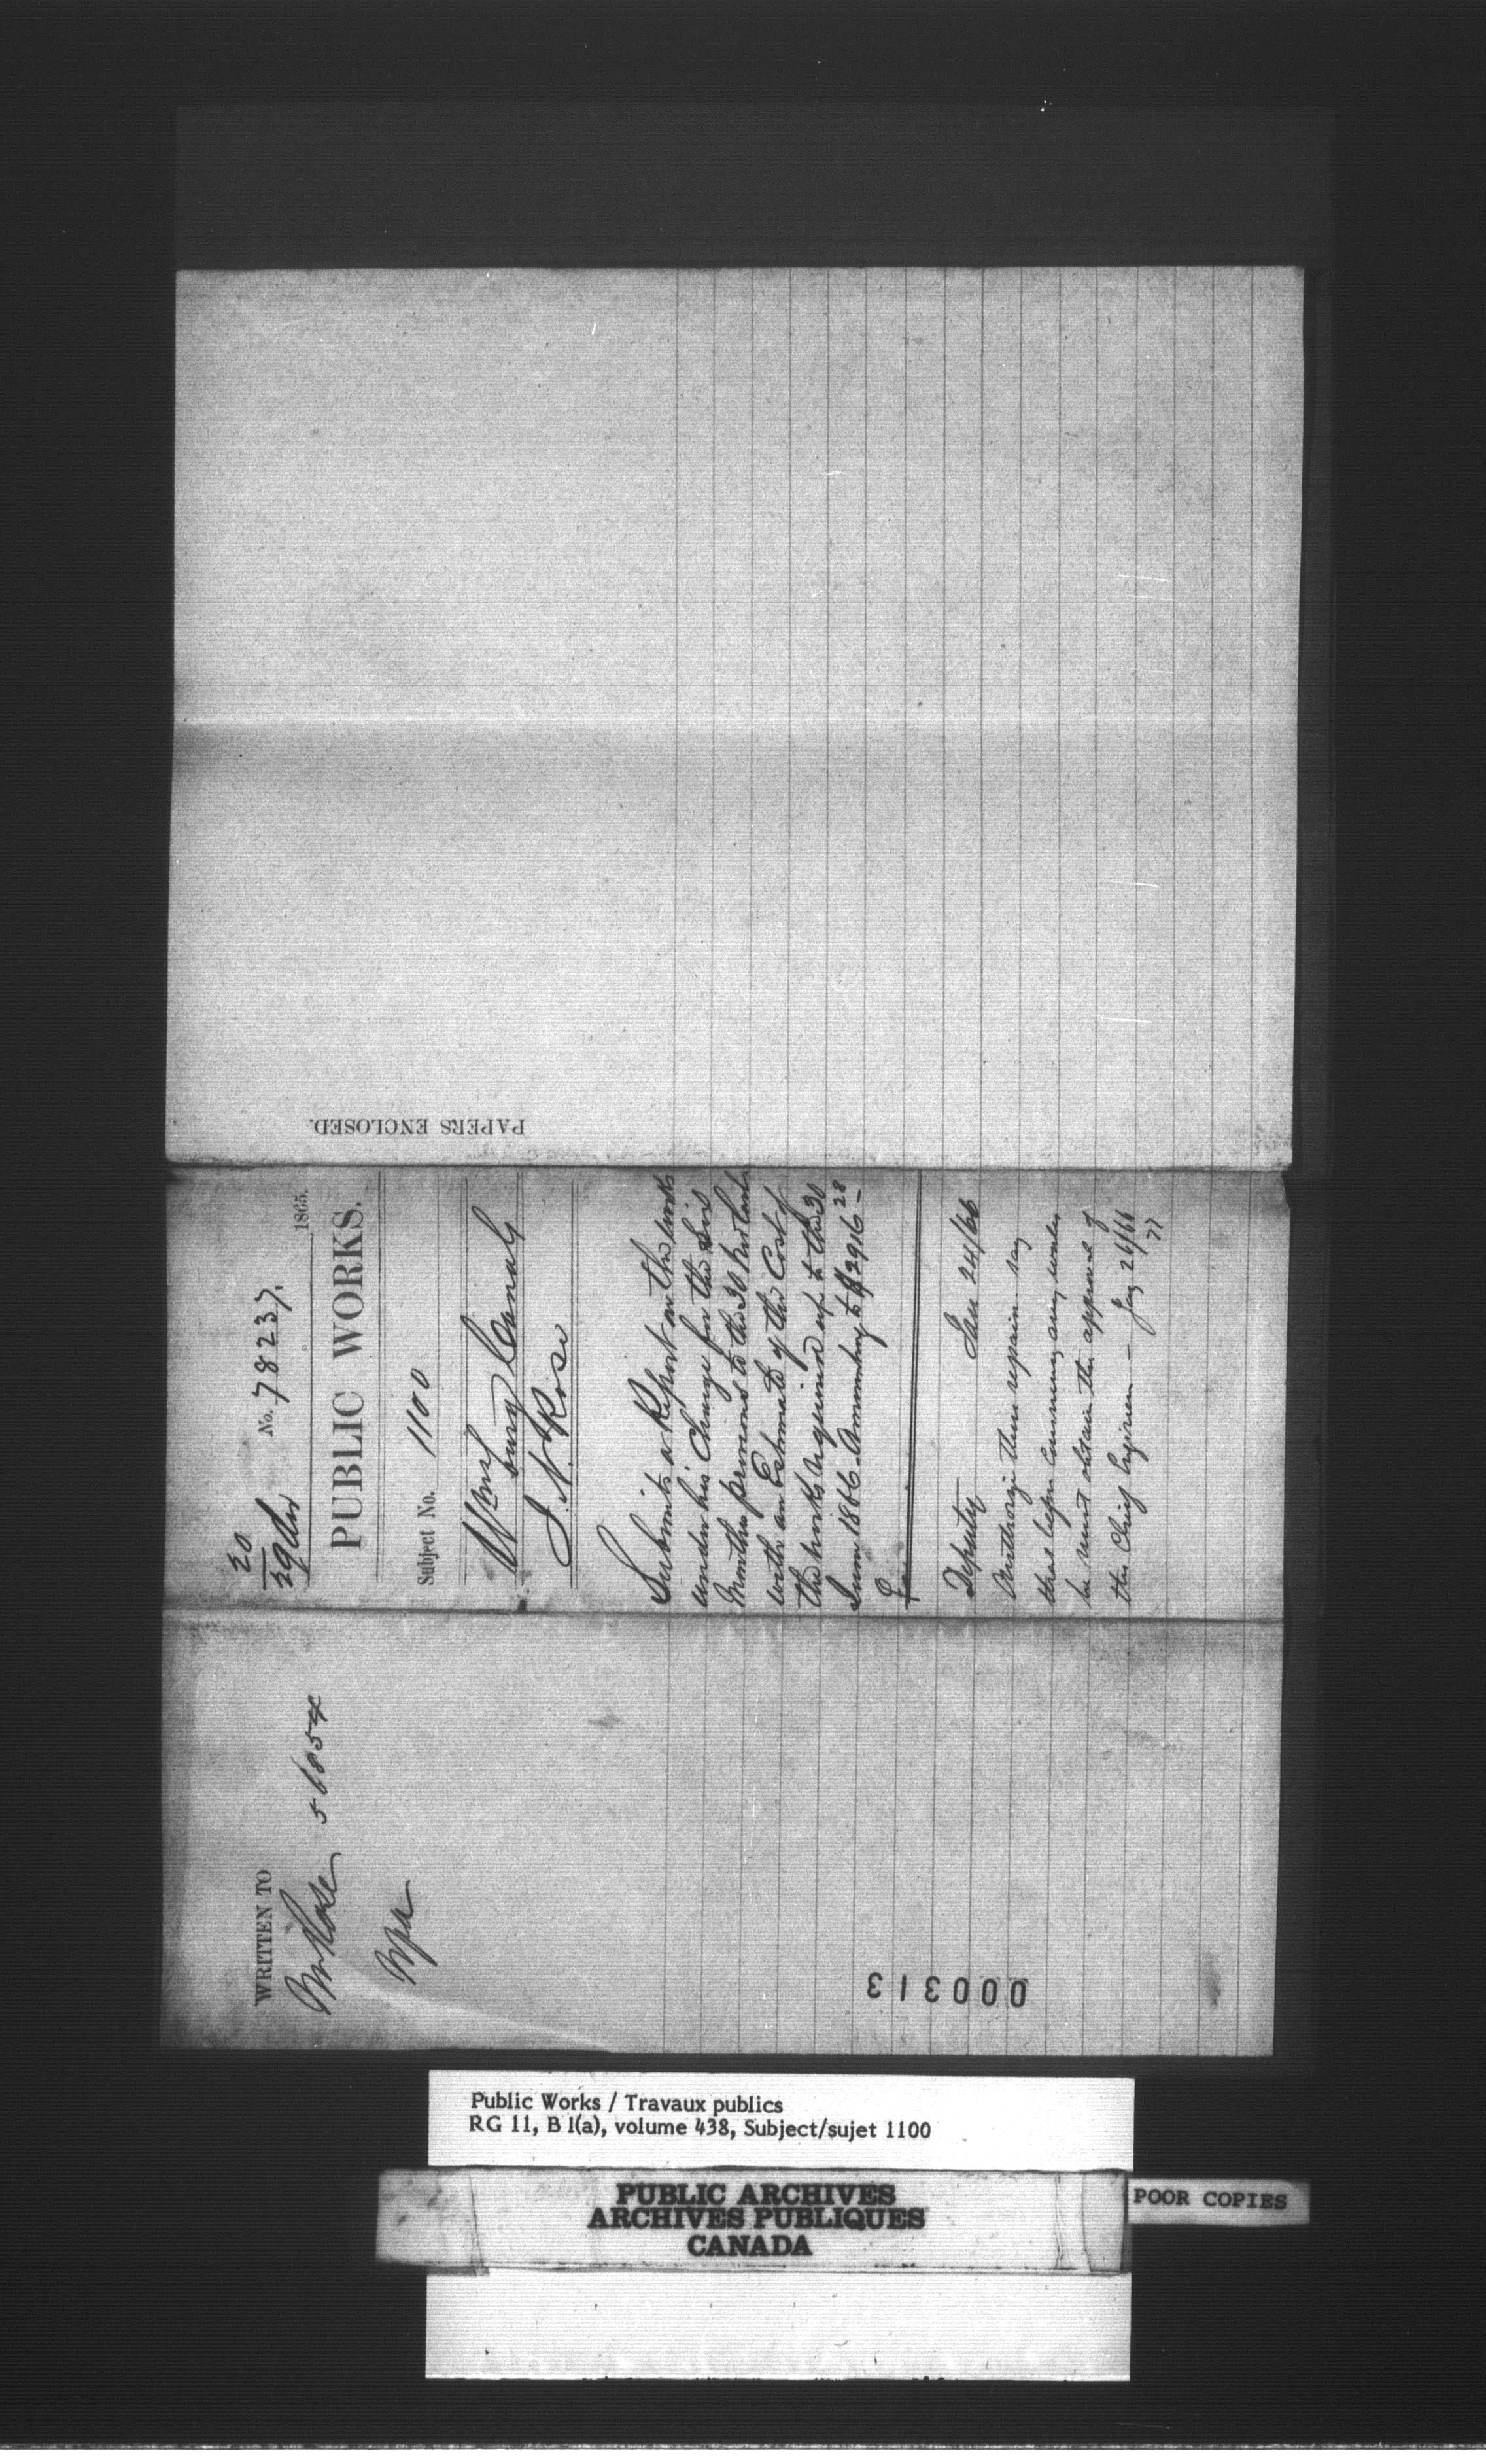 20
29 Dec No. 78237. 1865.
PUBLIC WORKS.
Subject No. 1100
Wmsburg Canals
I. N. Rose
Submits a Report on the works
under his Charge for the Six
Months previous to the 30
with an Estimate of the Cost of
the works required up to the 30
June 1866. Amounting to $2916 28
Deputy Jan 24/66
Authorize these repairs say
that before commencing any works
he must obtain the approval of
the Chief Engineer — Jany 26/66
77
PAPERS ENCLOSED.
WRITTEN TO
Mr Rose 56854
000313
Public Works / Travaux publics
RG 11, B 1(a), volume 438, Subject/sujet 1100
PUBLIC ARCHIVES
ARCHIVES PUBLIQUES
CANADA
POOR COPIES